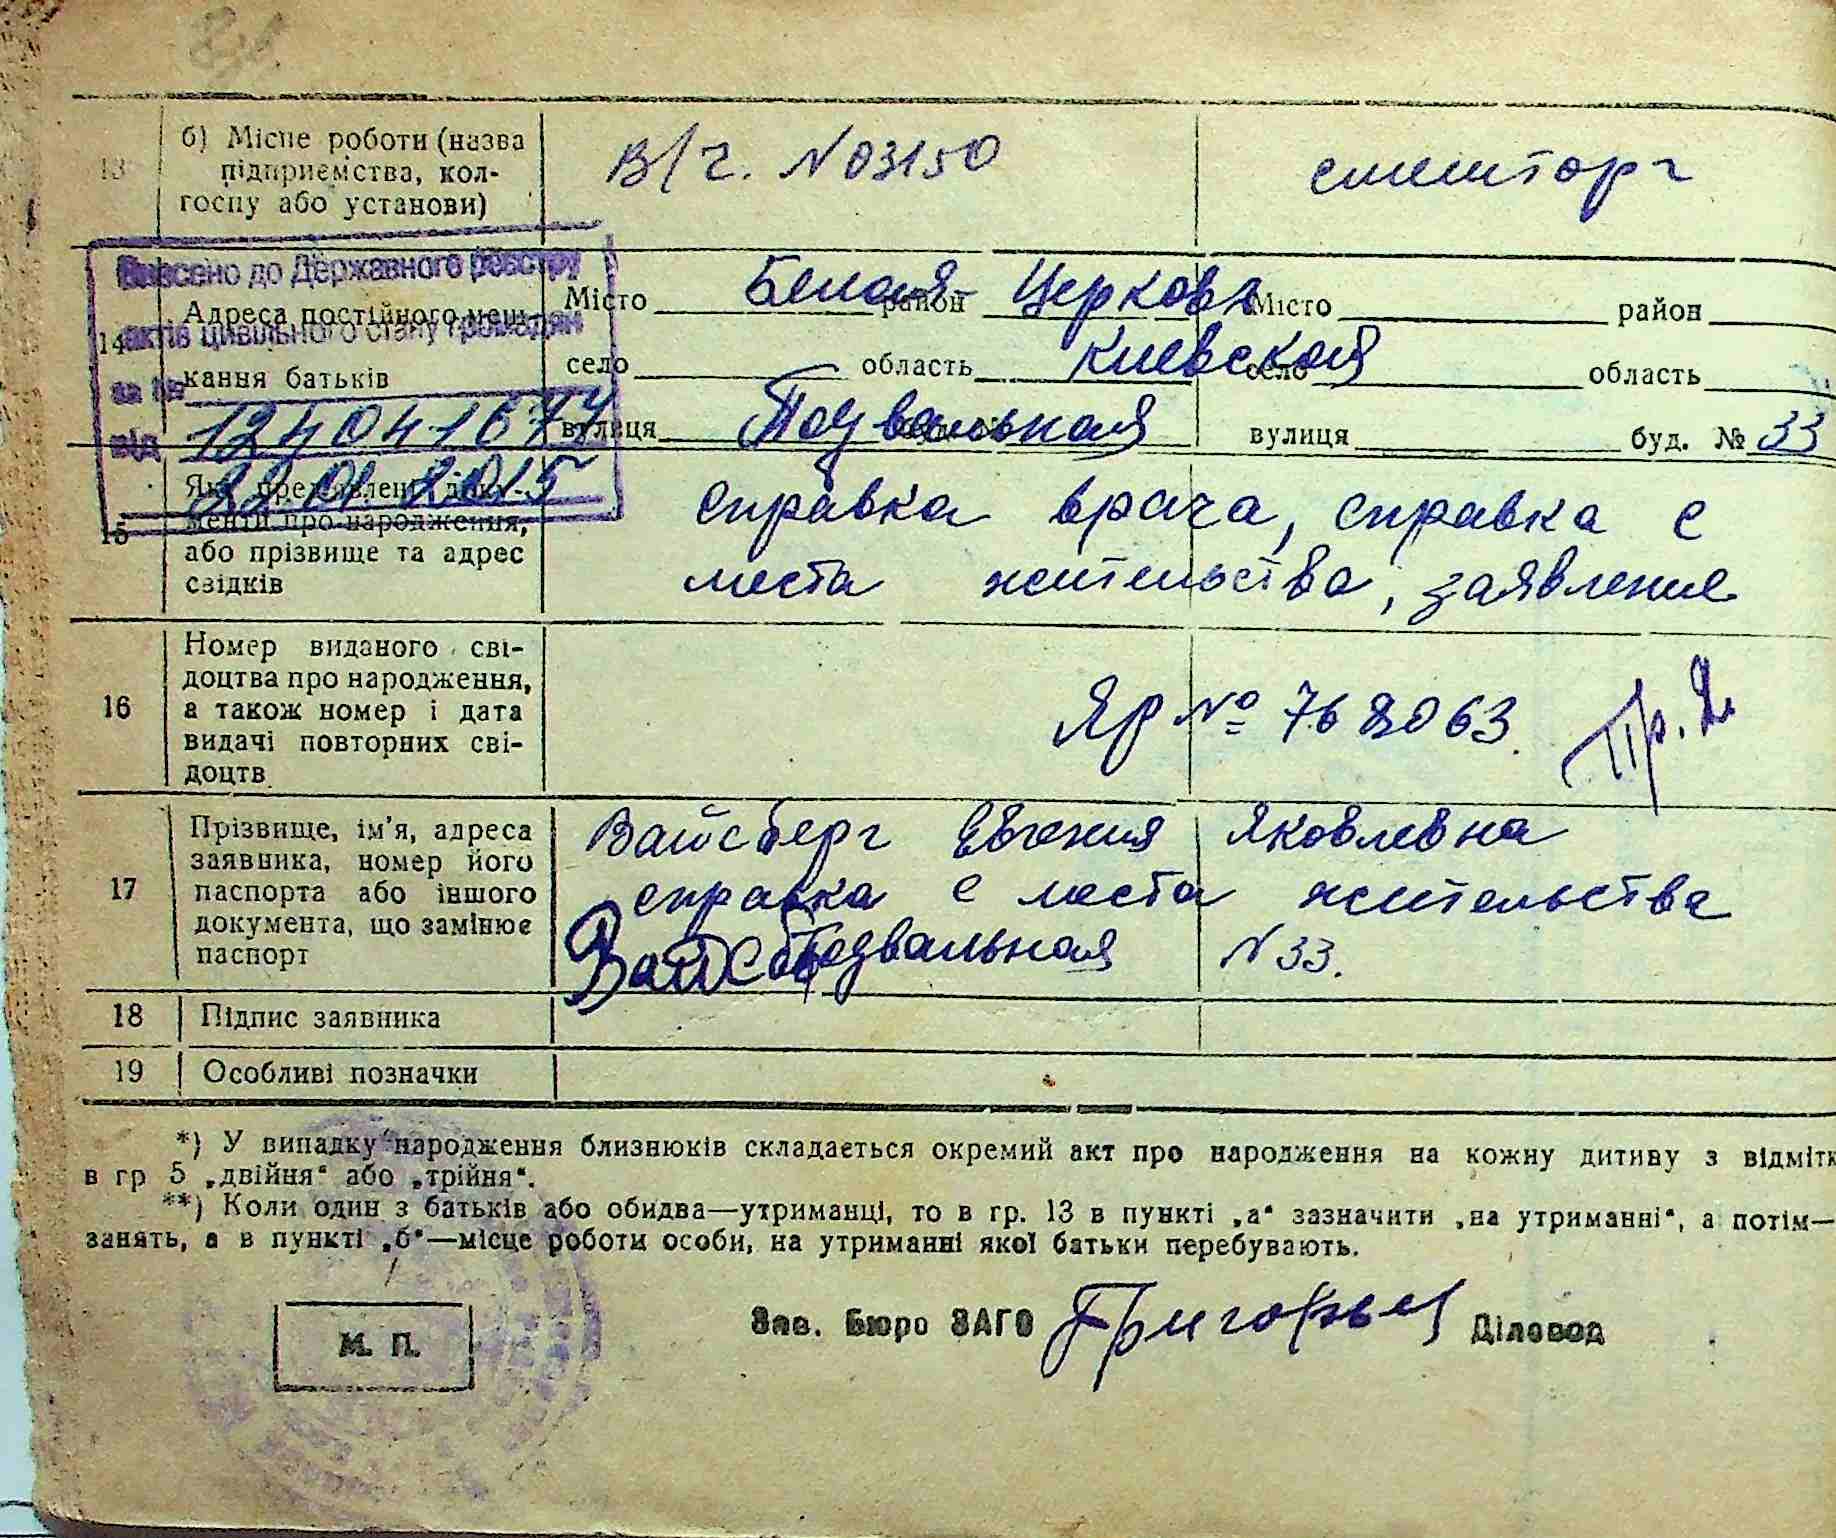 13 б) Місце роботи (назва
підприємства, кол-
госпу або установи)
В/ч. N 03150
смешторг
Внесено до Державного реєстру
актів цивільного стану громадян
за №
124041677
від 22 01 2015
14 Адреса постійного меш-
кання батьків
Місто Белая район Церковь Місто район
село область Киевской село область
вулиця Подвальная вулиця буд. № 33
15 Які пред'явлені доку-
менти про народження,
або прізвище та адрес
свідків
справка врача, справка с
места жительства, заявление
16 Номер виданого сві-
доцтва про народження,
а також номер і дата
видачі повторних сві-
доцтв
Яр № 768063. Пр.
17 Прізвище, ім'я, адреса
заявника, номер його
паспорта або іншого
документа, що замінює
паспорт
Вайсберг Евгения Яковлевна
справка с места жительства
Подвальная N 33.
18 Підпис заявника
19 Особливі позначки
*) У випадку народження близнюків складається окремий акт про народження на кожну дитину з відмітк
в гр 5 „двійня“ або „трійня“.
**) Коли один з батьків або обидва—утриманці, то в гр. 13 в пункті „а“ зазначити „на утриманні“, а потім—
занять, а в пункті „б“—місце роботи особи, на утриманні якої батьки перебувають.
М. П.
Зав. Бюро ЗАГС Діловод